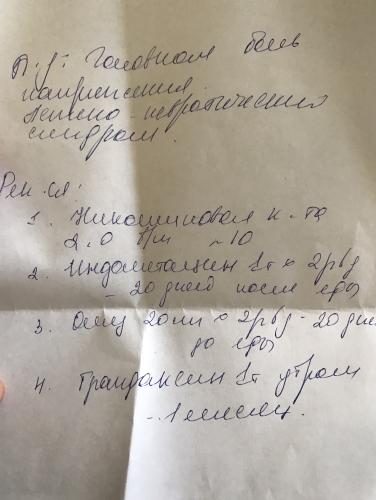 П.д: Головная боль
напряжения.
Астено-невротический
синдром.
Рек-ся:
1. Никотиновая к-та
2.0 в/м №10
2. Индометацин 1т х 2р в д
- 20 дней после еды
3. Омез 20мг х 2р в д - 20 дней
до еды
4. Грандаксин 1т утром
- 1 месяц.